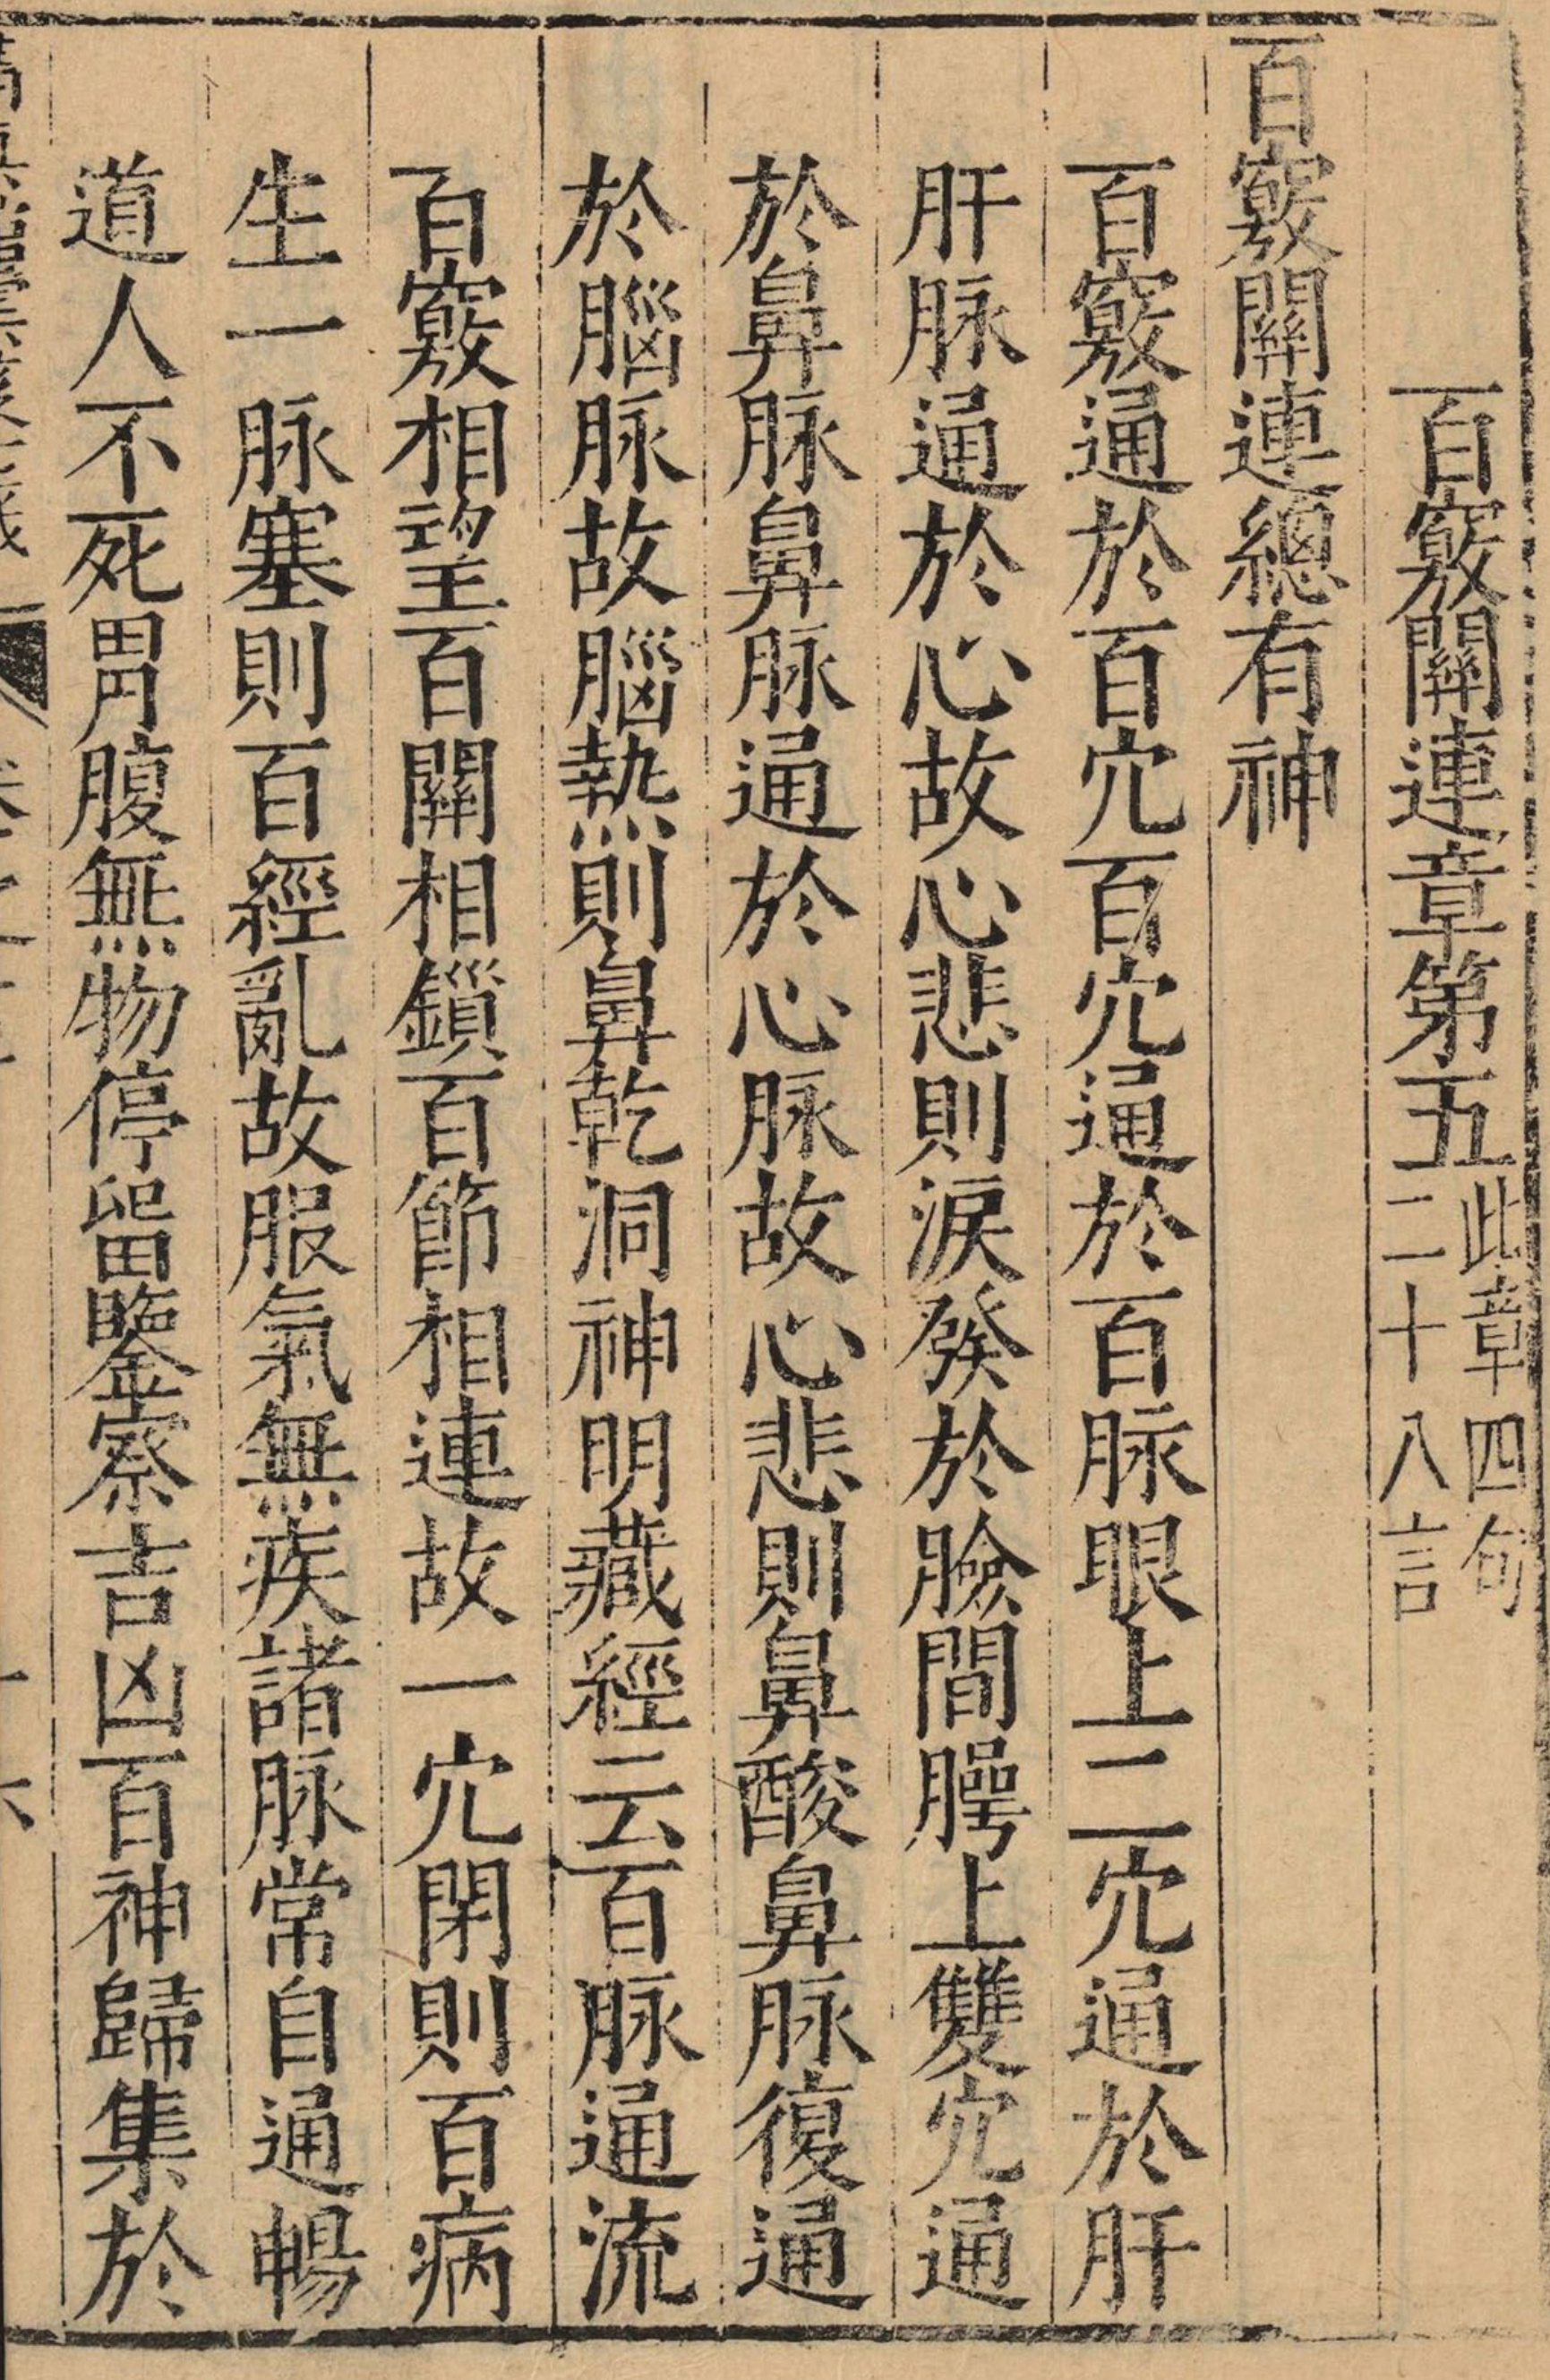 百竅關連章第五此章四句二十八言
百竅關連總有神
百竅通於百穴百穴通於百脉眼上二穴通於肝
肝脉通於心故心悲則淚發於臉間腭上雙穴通
於鼻脉鼻脉通於心脉故心悲則鼻酸鼻脉復通
於腦脉故腦熱則鼻乾洞神明藏經云百脉通流
百竅相望百關相鎖百節相連故一穴閉則百病
生一脉塞則百經亂故服氣無疾諸脉常自通暢
道人不死胃腹無物停留鑒察吉凶百神歸集於